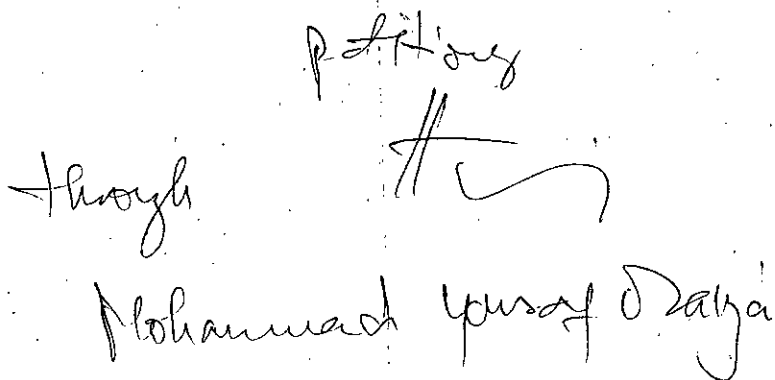 Petitioner
through
Mohammad Yousaf Orakzai